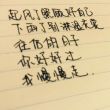 起风了照顾好自己
下雨了别淋湿衣裳
往后的日子
你好好过
我慢慢走.